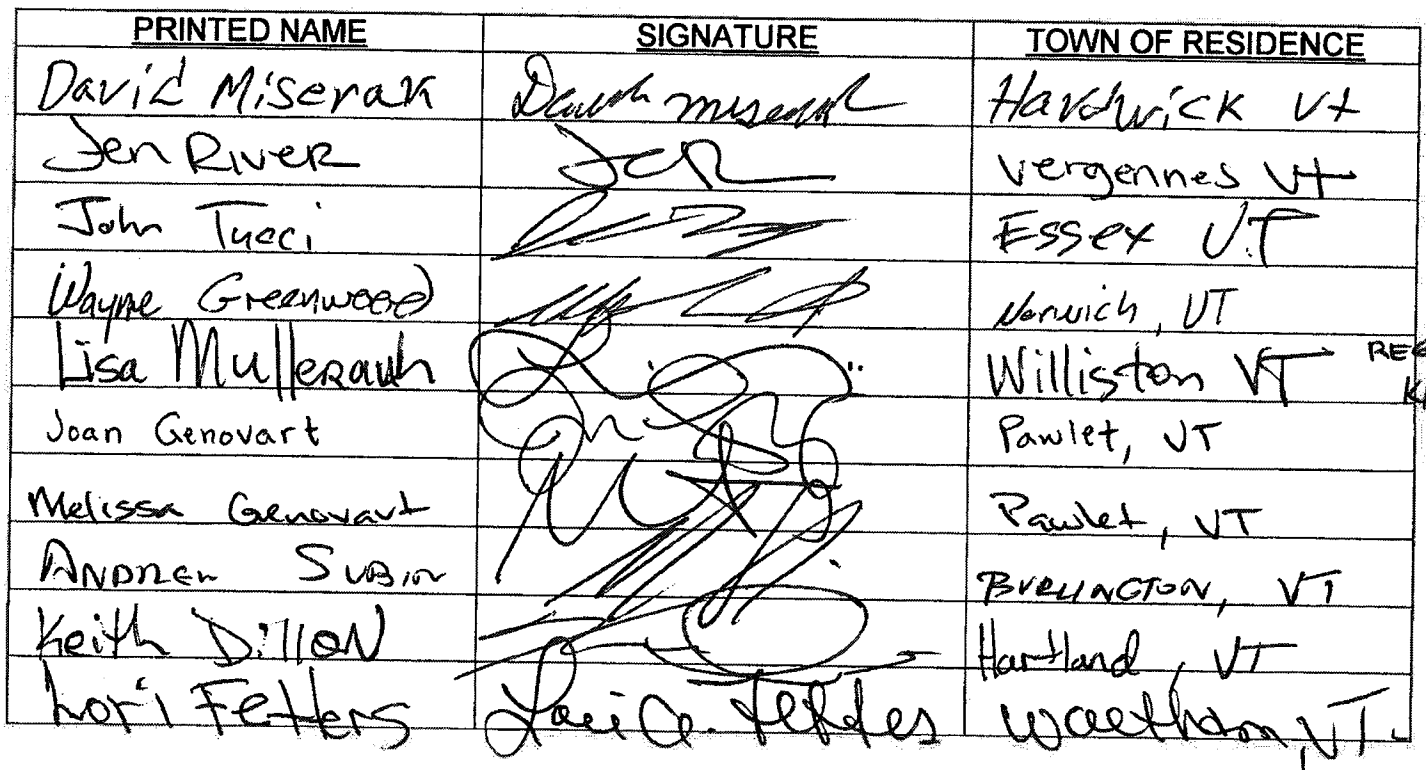 PRINTED NAME SIGNATURE TOWN OF RESIDENCE
David Miserak David Miserak Hardwick Vt
Jen River JER Vergennes Vt
John Tucci Essex VT
Wayne Greenwood Norwich, VT
Lisa Mullerauh Williston VT
Joan Genovart Pawlet, VT
Melissa Genovart Pawlet, VT
ANDREW SUBIN BURLINGTON, VT
Keith Dillon Hartland, VT
Lori Fetters Lori A. Fetters Waltham, VT.